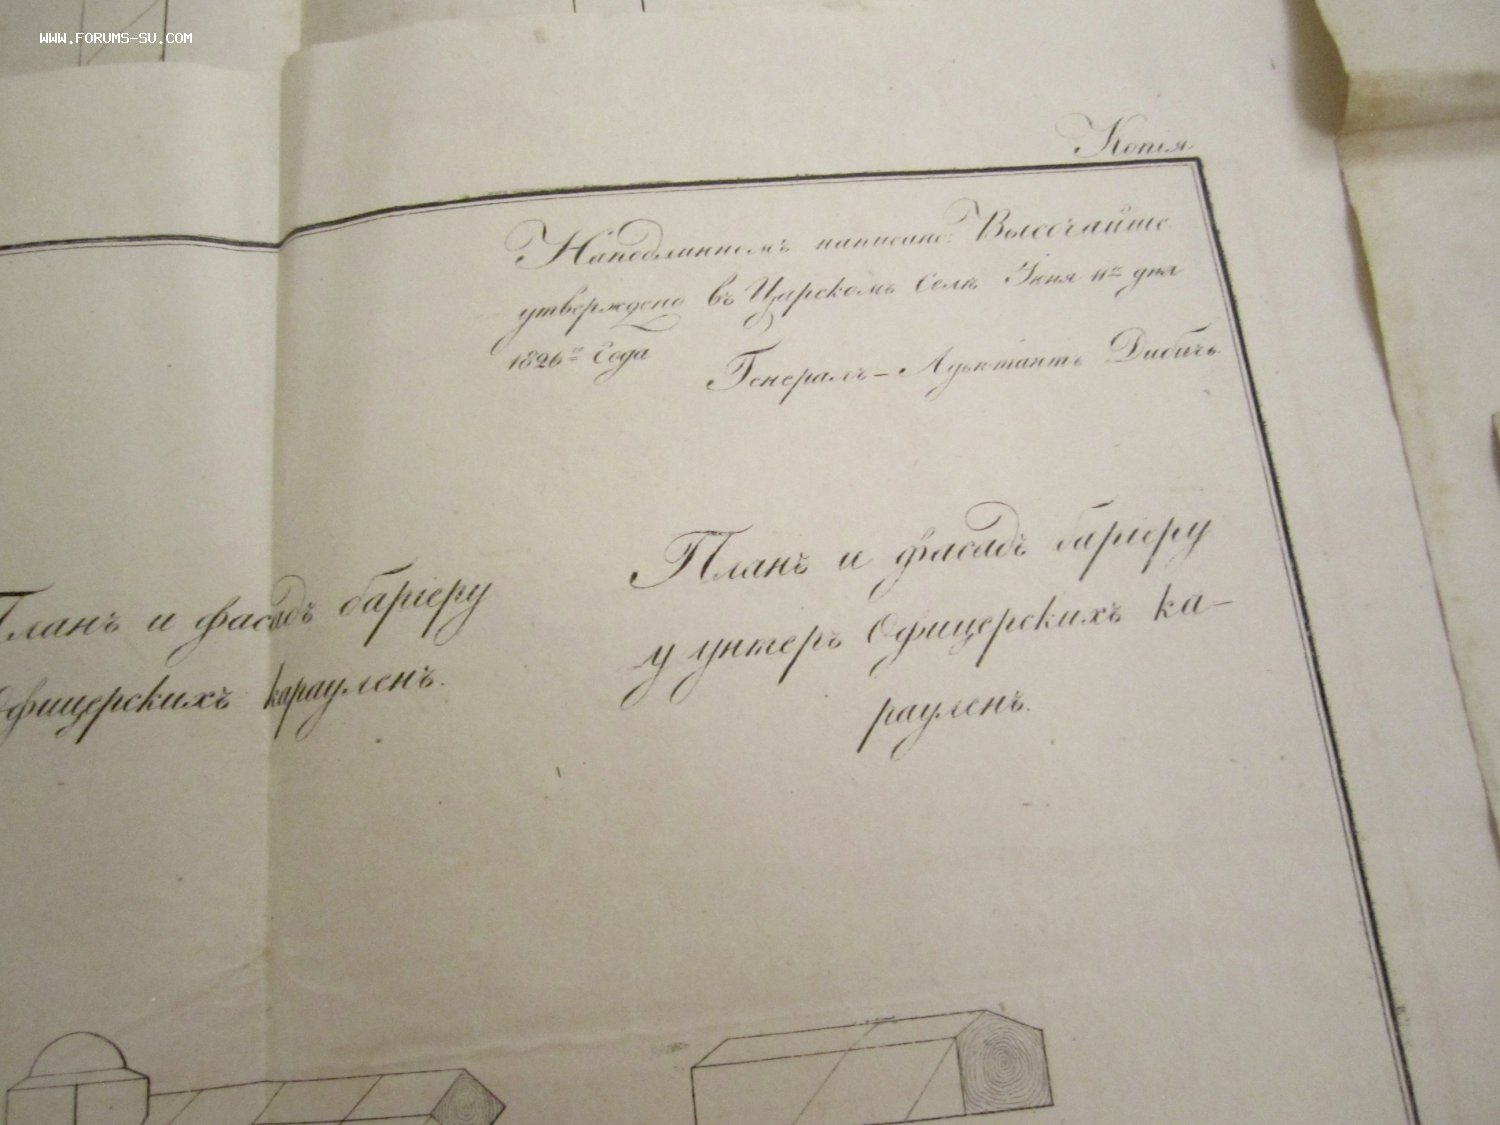 WWW.FORUMS-SU.COM
Копія
Наподлинномъ написано: Высочайше
утверждено въ Царскомъ Селѣ Іюня 11го дня
1826го Года
Генералъ-Адьютантъ Дибичъ.
Планъ и фасадъ баріеру
Офицерскихъ карауленъ.
Планъ и фасадъ баріеру
у унтеръ Офицерскихъ ка-
рауленъ.